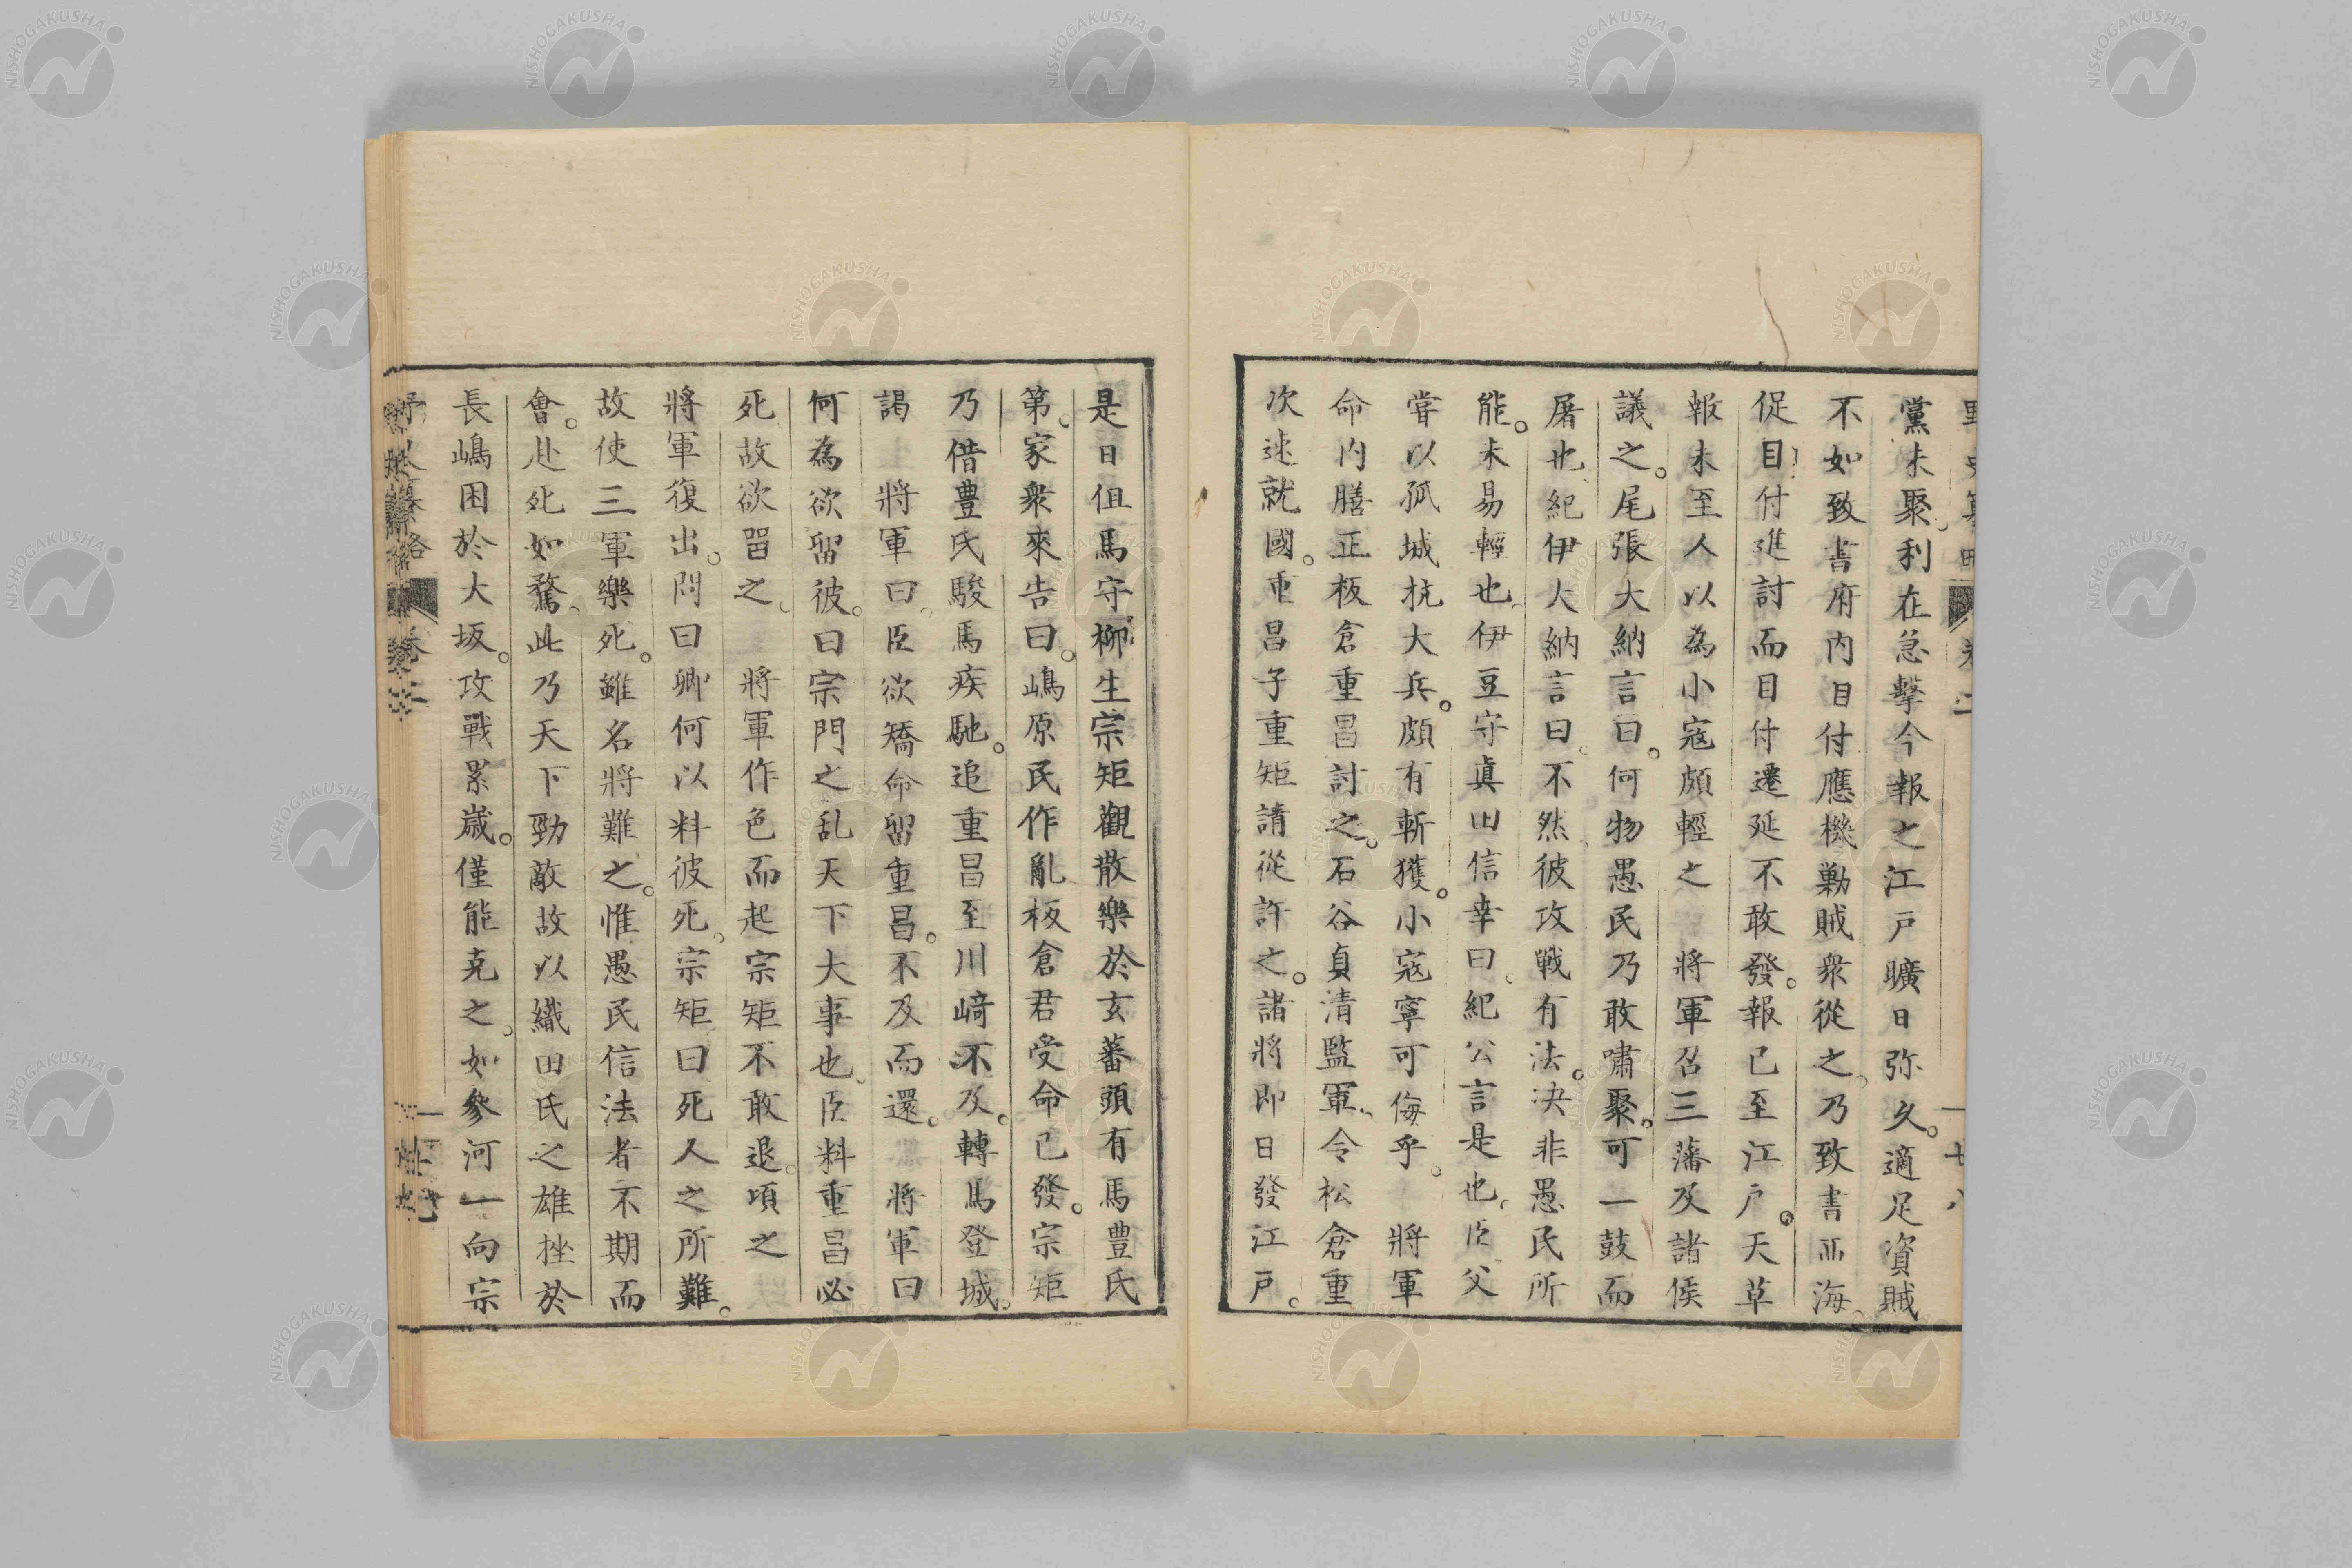 黨未聚利在急擊今報之江戸曠日弥久。適足資賊
不如致書府内目付應機勦賊衆從之。乃致書西海。
促目付進討而目付遷延不敢發。報已至江戸。天草
報未至人以為小寇頗輕之　將軍召三藩及諸侯
議之。尾張大納言曰。何物愚民乃敢嘯聚。可一鼓而
屠也紀伊大納言曰。不然彼攻戰有法。決非愚民所
能。未易輕也。伊豆守眞田信幸曰。紀公言是也。臣父
嘗以孤城抗大兵。頗有斬獲。小寇寧可侮乎。　將軍
命内膳正板倉重昌討之。石谷貞清監軍。令松倉重
次速就國。重昌子重矩請從許之。諸將即日發江戸。
是日但馬守柳生宗矩觀散樂於玄蕃頭有馬豊氏
第。家衆來告曰。嶋原民作亂板倉君受命已發。宗矩
乃借豊氏駿馬疾馳。追重昌至川﨑不及。轉馬登城。
謁　將軍曰。臣欲矯命留重昌。不及而還。　將軍曰
何為欲留彼。曰宗門之乱天下大事也。臣料重昌必
死故欲留之。　將軍作色而起宗矩不敢退。項之
將軍復出。問曰卿何以料彼死。宗矩曰死人之所難。
故使三軍樂死。雖名將難之。惟愚民信法者不期而
會。赴死如騖。此乃天下勁敵故以織田氏之雄挫於
長嶋困於大坂。攻戰累歳。僅能克之。如參河一向宗